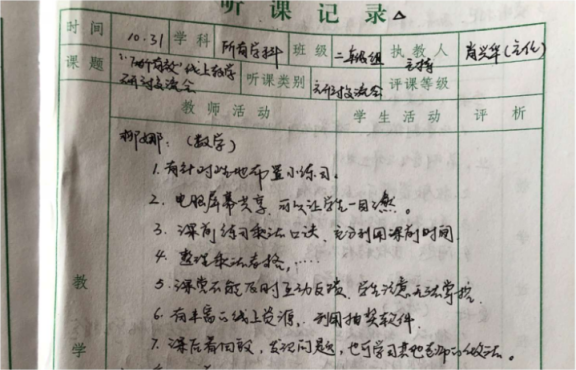 听课记录
时间 10.31 学科 所有学科 班级 二年级组 执教人 主持 肖兴华(主任)
课题 "有效"线上教学研讨交流会 听课类别 研讨交流会 评课等级
教师活动 学生活动 评析
柳娜:(数学)
1.有针对性地布置小练习。
2.电脑屏幕共享,可以让学生一目了然。
3.课前练习乘法口诀,充分利用课前时间.
4.整理乘法表格,……
5.课堂不能及时互动反馈,学生注意无法掌控.
6.有丰富的线上资源,利用抽奖软件.
教 7.课后看回放,发现问题,也可学习其他老师的做法。
学